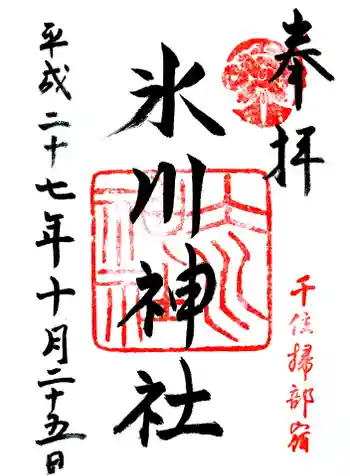 奉拝
千住掃部宿
氷川神社
平成二十七年十月二十五日